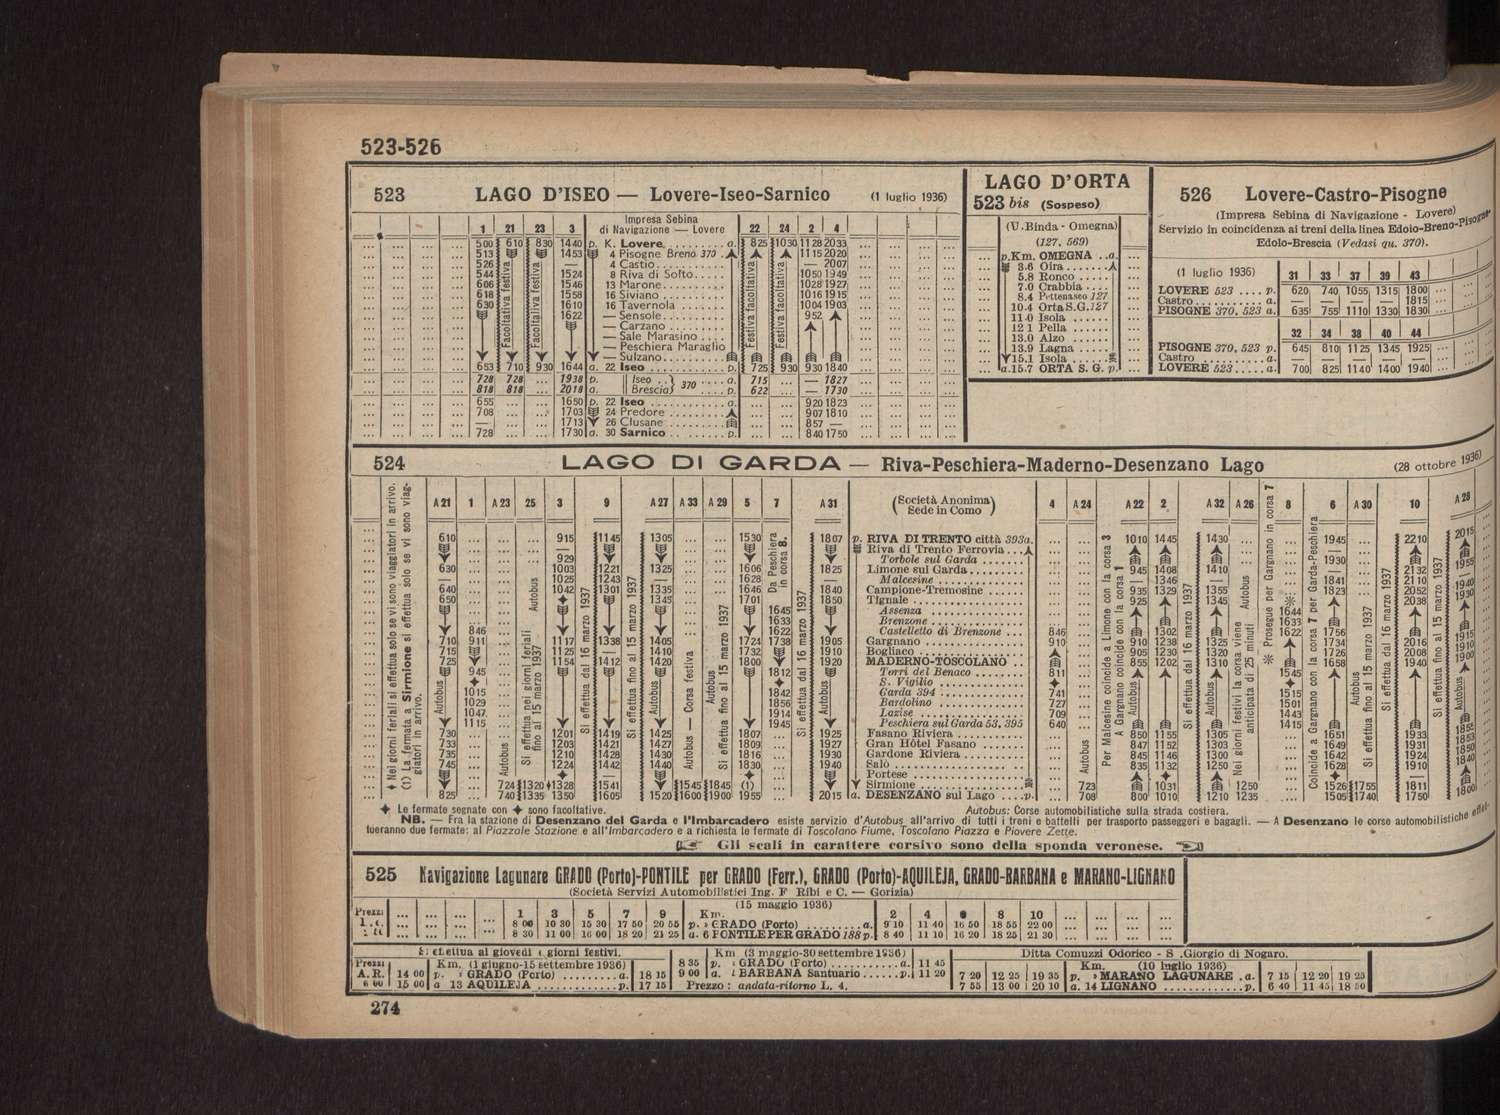 523-526
523 LAGO D'ISEO — Lovere-Iseo-Sarnico (1 luglio 1936)
1 21 23 3 Impresa Sebina di Navigazione — Lovere 22 24 2 4
500 610 830 1440 p. K. Lovere a. 825 1030 1128 2033
513 1453 4 Pisogne Breno 370 1115 2020
526 — 4 Castio — 2007
544 1524 8 Riva di Solto 1050 1949
606 1546 13 Marone 1028 1927
618 1558 16 Siviano 1016 1915
630 1610 16 Tavernola 1004 1903
1622 — Sensole 952
— Carzano
— Sale Marasino
— Peschiera Maraglio
— Sulzano
Facoltativa festiva
Facoltativa festiva
Festiva facoltativa
Festiva facoltativa
653 710 930 1644 a. 22 Iseo p. 725 930 930 1840
728 728 ... 1938 p. Iseo 370 a. 715 ... — 1827
818 818 ... 2018 a. Brescia p. 622 ... — 1730
655 ... ... 1650 p. 22 Iseo a. ... ... 920 1823
708 ... ... 1703 24 Predore ... ... 907 1810
— ... ... 1713 26 Clusane ... ... 857 —
728 ... ... 1730 a. 30 Sarnico p. ... ... 840 1750
LAGO D'ORTA
523 bis (Sospeso)
(U. Binda - Omegna)
(127, 569)
p. Km. OMEGNA a.
3.6 Oira
5.8 Ronco
7.0 Crabbia
8.4 Pettenasco 127
10.4 Orta S.G. 127
11.0 Isola
12.1 Pella
13.0 Alzo
13.9 Lagna
15.1 Isola
a. 15.7 ORTA S. G. p.
526 Lovere-Castro-Pisogne
(Impresa Sebina di Navigazione - Lovere)
Servizio in coincidenza ai treni della linea Edolo-Breno-Pisogne-
Edolo-Brescia (Vedasi qu. 370).
(1 luglio 1936) 31 33 37 39 43
LOVERE 523 p. 620 740 1055 1315 1800
Castro a. — — — — 1815
PISOGNE 370, 523 a. 635 755 1110 1330 1830
32 34 38 40 44
PISOGNE 370, 523 p. 645 810 1125 1345 1925
Castro a. — — — — —
LOVERE 523 a. 700 825 1140 1400 1940
524 LAGO DI GARDA — Riva-Peschiera-Maderno-Desenzano Lago (28 ottobre 1936)
A 21 1 A 23 25 3 9 A 27 A 33 A 29 5 7 A 31 (Società Anonima Sede in Como) 4 A 24 A 22 2 A 32 A 26 8 6 A 30 10 A 28
♦ Nei giorni feriali si effettua solo se vi sono viaggiatori in arrivo.
(1) La fermata a Sirmione si effettua solo se vi sono viaggiatori in arrivo.
Autobus
Si effettua nei giorni feriali fino al 15 marzo 1937
Si effettua dal 16 marzo 1937
Si effettua fino al 15 marzo 1937
Autobus — Corsa festiva
Da Peschiera in corsa 8.
Per Malcesine coincide a Limone con la corsa 3
A Gargnano coincide con la corsa 1
Nei giorni festivi la corsa viene anticipata di 25 minuti
※ Prosegue per Gargnano in corsa 7
Coincide a Gargnano con la corsa 7 per Garda-Peschiera
610 915 1145 1305 1530 1807 p. RIVA DI TRENTO città 393a. 1010 1445 1430 1945 2210 2015
— Riva di Trento Ferrovia
929 Torbole sul Garda 1930 1955
630 1003 1221 1325 1606 1825 Limone sul Garda 945 1408 1410 — 2132
— 1025 1243 — 1628 — Malcesine — 1346 — 1841 2110 1940
640 1042 1301 1335 1646 1840 Campione-Tremosine 935 1329 1355 1823 2052 1930
650 1345 1701 1850 Tignale 925 1345 2038
1645 Assenza 1644
1633 Brenzone 1633
846 1622 Castelletto di Brenzone 846 1302 1622 1756 1915
710 911 1117 1338 1405 1724 1738 1905 Gargnano 910 910 1238 1325 1734 2016 1910
715 1125 — 1410 1732 1910 Bogliaco 905 1230 1320 1726 2008 1900
725 1154 1412 1420 1800 1920 MADERNO-TOSCOLANO 855 1202 1310 1658 1940
945 1812 Torri del Benaco 811 1545
S. Vigilio
1015 1842 Garda 394 741 1515
1029 1856 Bardolino 727 1501
1047 1914 Lazise 709 1443
1115 1945 Peschiera sul Garda 53, 395 640 1415
730 1201 1419 1425 1807 1925 Fasano Riviera 850 1155 1305 1651 1933 1855
733 1203 1421 1427 1809 1927 Gran Hôtel Fasano 847 1152 1303 1649 1931 1853
735 1210 1428 1430 1816 1930 Gardone Riviera 845 1146 1300 1642 1924 1850
745 1224 1442 1440 1830 1940 Salò 835 1132 1250 1628 1910 1840
— Portese
724 1320 1328 1541 1545 1845 (1) Sirmione 723 1031 1250 1526 1755 1811
825 740 1335 1350 1605 1520 1600 1900 1955 2015 a. DESENZANO sul Lago p. 708 800 1010 1210 1235 1505 1740 1750 1800
♦ Le fermate segnate con ♦ sono facoltative. Autobus: Corse automobilistiche sulla strada costiera.
NB. — Fra la stazione di Desenzano del Garda e l'Imbarcadero esiste servizio d'Autobus all'arrivo di tutti i treni e battelli per trasporto passeggeri e bagagli. — A Desenzano le corse automobilistiche effet-
tueranno due fermate: al Piazzale Stazione e all'Imbarcadero e a richiesta le fermate di Toscolano Fiume, Toscolano Piazza e Piovere Zette.
Gli scali in carattere corsivo sono della sponda veronese.
525 Navigazione Lagunare GRADO (Porto)-PONTILE per GRADO (Ferr.), GRADO (Porto)-AQUILEJA, GRADO-BARBANA e MARANO-LIGNANO
(Società Servizi Automobilistici Ing. F Ribi e C. — Gorizia)
(15 maggio 1936)
Prezzi 1 3 5 7 9 Km. 2 4 6 8 10
8 00 10 30 15 30 17 50 20 55 p. GRADO (Porto) a. 9 10 11 40 16 50 18 55 22 00
8 30 11 00 16 00 18 20 21 25 a. 6 PONTILE PER GRADO 188 p. 8 40 11 10 16 20 18 25 21 30
Si effettua al giovedì e giorni festivi.
Prezzi Km. (1 giugno-15 settembre 1936)
A. R. 14 00 p. GRADO (Porto) a. 18 15
6 00 15 00 a 13 AQUILEJA p. 17 15
Km (3 maggio-30 settembre 1936)
8 35 p. GRADO (Porto) a. 11 45
9 00 a. BARBANA Santuario p. 11 20
Prezzo: andata-ritorno L. 4.
Ditta Comuzzi Odorico - S. Giorgio di Nogaro.
Km. (10 luglio 1936)
7 20 12 25 19 35 p. MARANO LAGUNARE a. 7 15 12 20 19 25
7 55 13 00 20 10 a. 14 LIGNANO p. 6 40 11 45 18 50
274